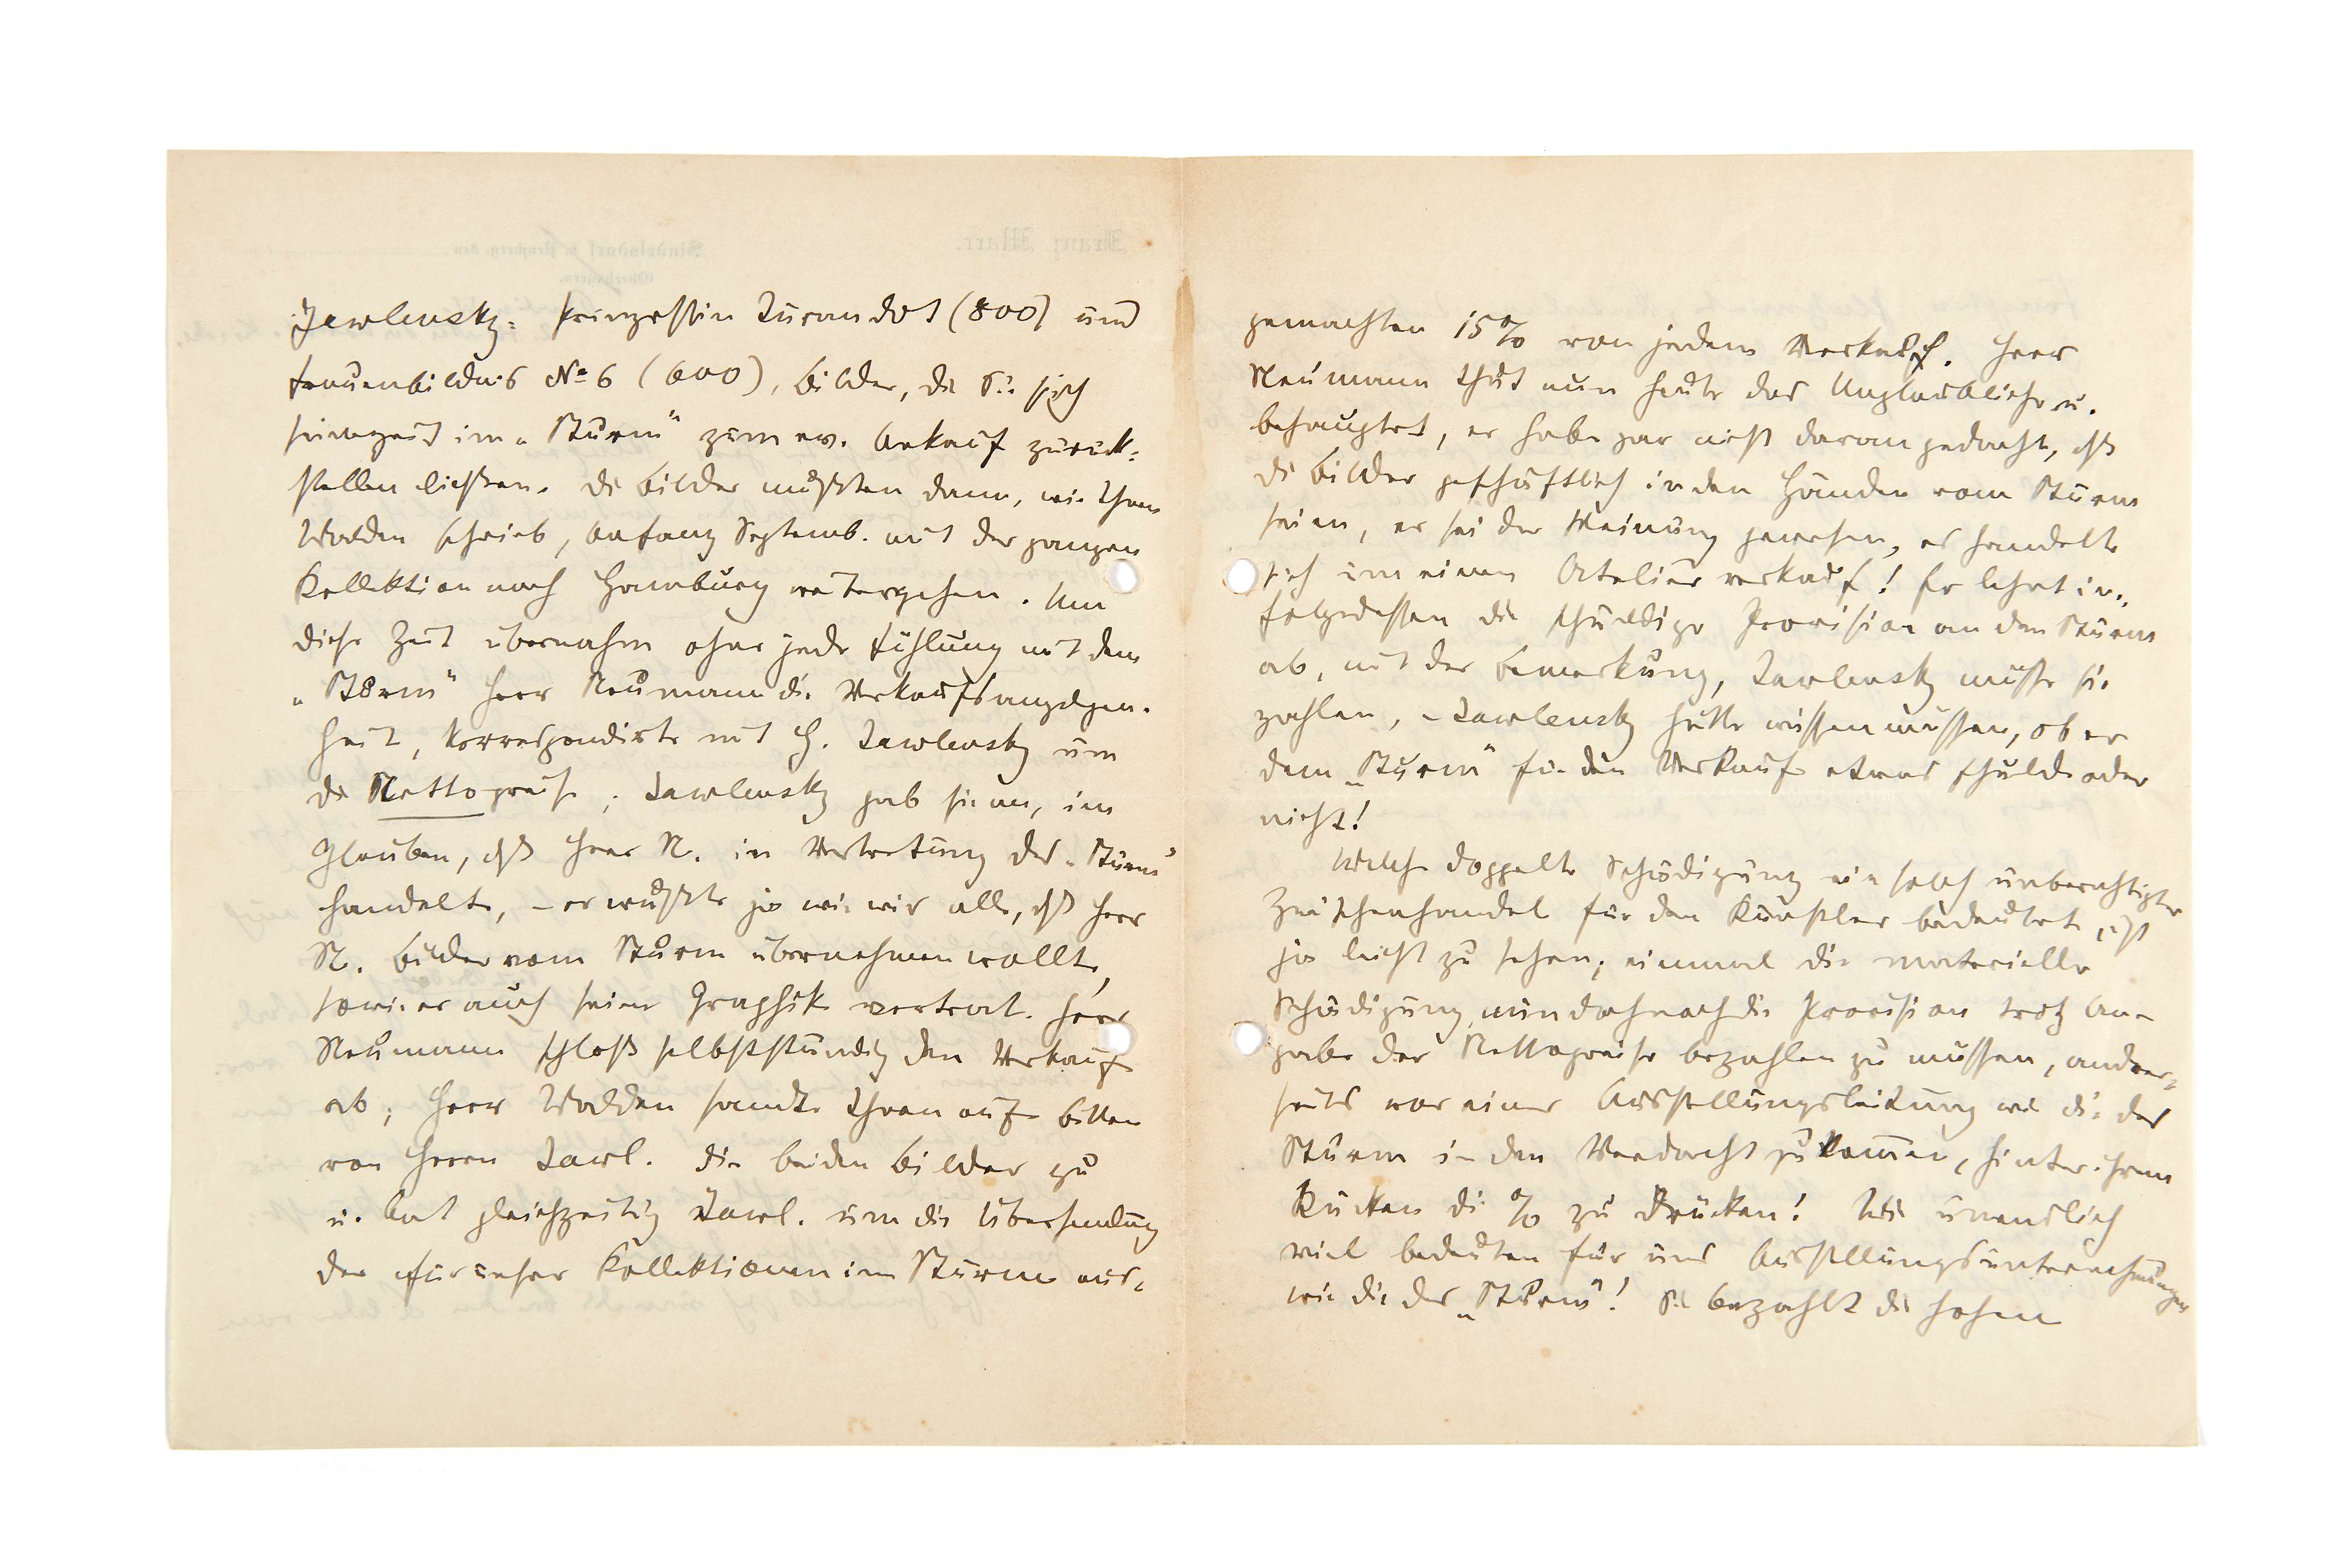 Jawlensky: Prinzessin Turandot (800) und
Frauenbildnis No 6 (600), Bilder, die Sie sich
seinerzeit im „Sturm“ zum ev. Ankauf zurück=
stellen liessen. Die Bilder mußten dann, wie Ihnen
Walden schrieb, Anfang Septemb. mit der ganzen
Kollektion nach Hamburg weitergehen. Um
diese Zeit übernahm ohne jede Fühlung mit dem
„Sturm“ Herr Neumann die Verkaufsangelegen-
heit, korrespondirte mit H. Jawlensky um
die Nettopreise; Jawlensky gab sie an, im
Glauben, dß Herr N. in Vertretung des „Sturm“
handelte, – er wußte ja wie wir alle, dß Herr
N. Bilder vom Sturm übernehmen wollte,
sowie er auch seine Graphik vertrat. Herr
Neumann schloß selbstständig den Verkauf
ab; Herr Walden sandte Ihnen auf Bitten
von Herrn Jawl. die beiden Bilder zu
u. bat gleichzeitig Jawl. um die Übersendung
der für unsere Kollektionen im Sturm aus=
gemachten 15% von jedem Verkauf. Herr
Neumann thut nun heute das Unglaubliche u.
behauptet, er habe gar nicht daran gedacht, dß
die Bilder geschäftlich in den Händen vom Sturm
seien, er sei der Meinung gewesen, es handelte
sich um einen Atelierverkauf! Er lehnt in=
folgedessen die schuldige Provision an den Sturm
ab, mit der Bemerkung, Jawlensky müsse sie
zahlen, – Jawlensky hätte wissen müssen, ob er
dem „Sturm“ für den Verkauf etwas schulde oder
nicht!
Welche doppelte Schädigung ein solch unberechtigter
Zwischenhandel für den Künstler bedeutet, ist
ja leicht zu sehen; einmal die materielle
Schädigung, nun doch noch die Provision trotz An-
gabe der Nettopreise bezahlen zu müssen, andrer=
seits vor einer Ausstellungsleitung wie die des
Sturm in den Verdacht zu kommen, hinter ihrem
Rücken die % zu drücken! Wie unendlich
viel bedeuten für uns Ausstellungsunternehmungen
wie die des „Sturm“! Sie bezahlt die hohen